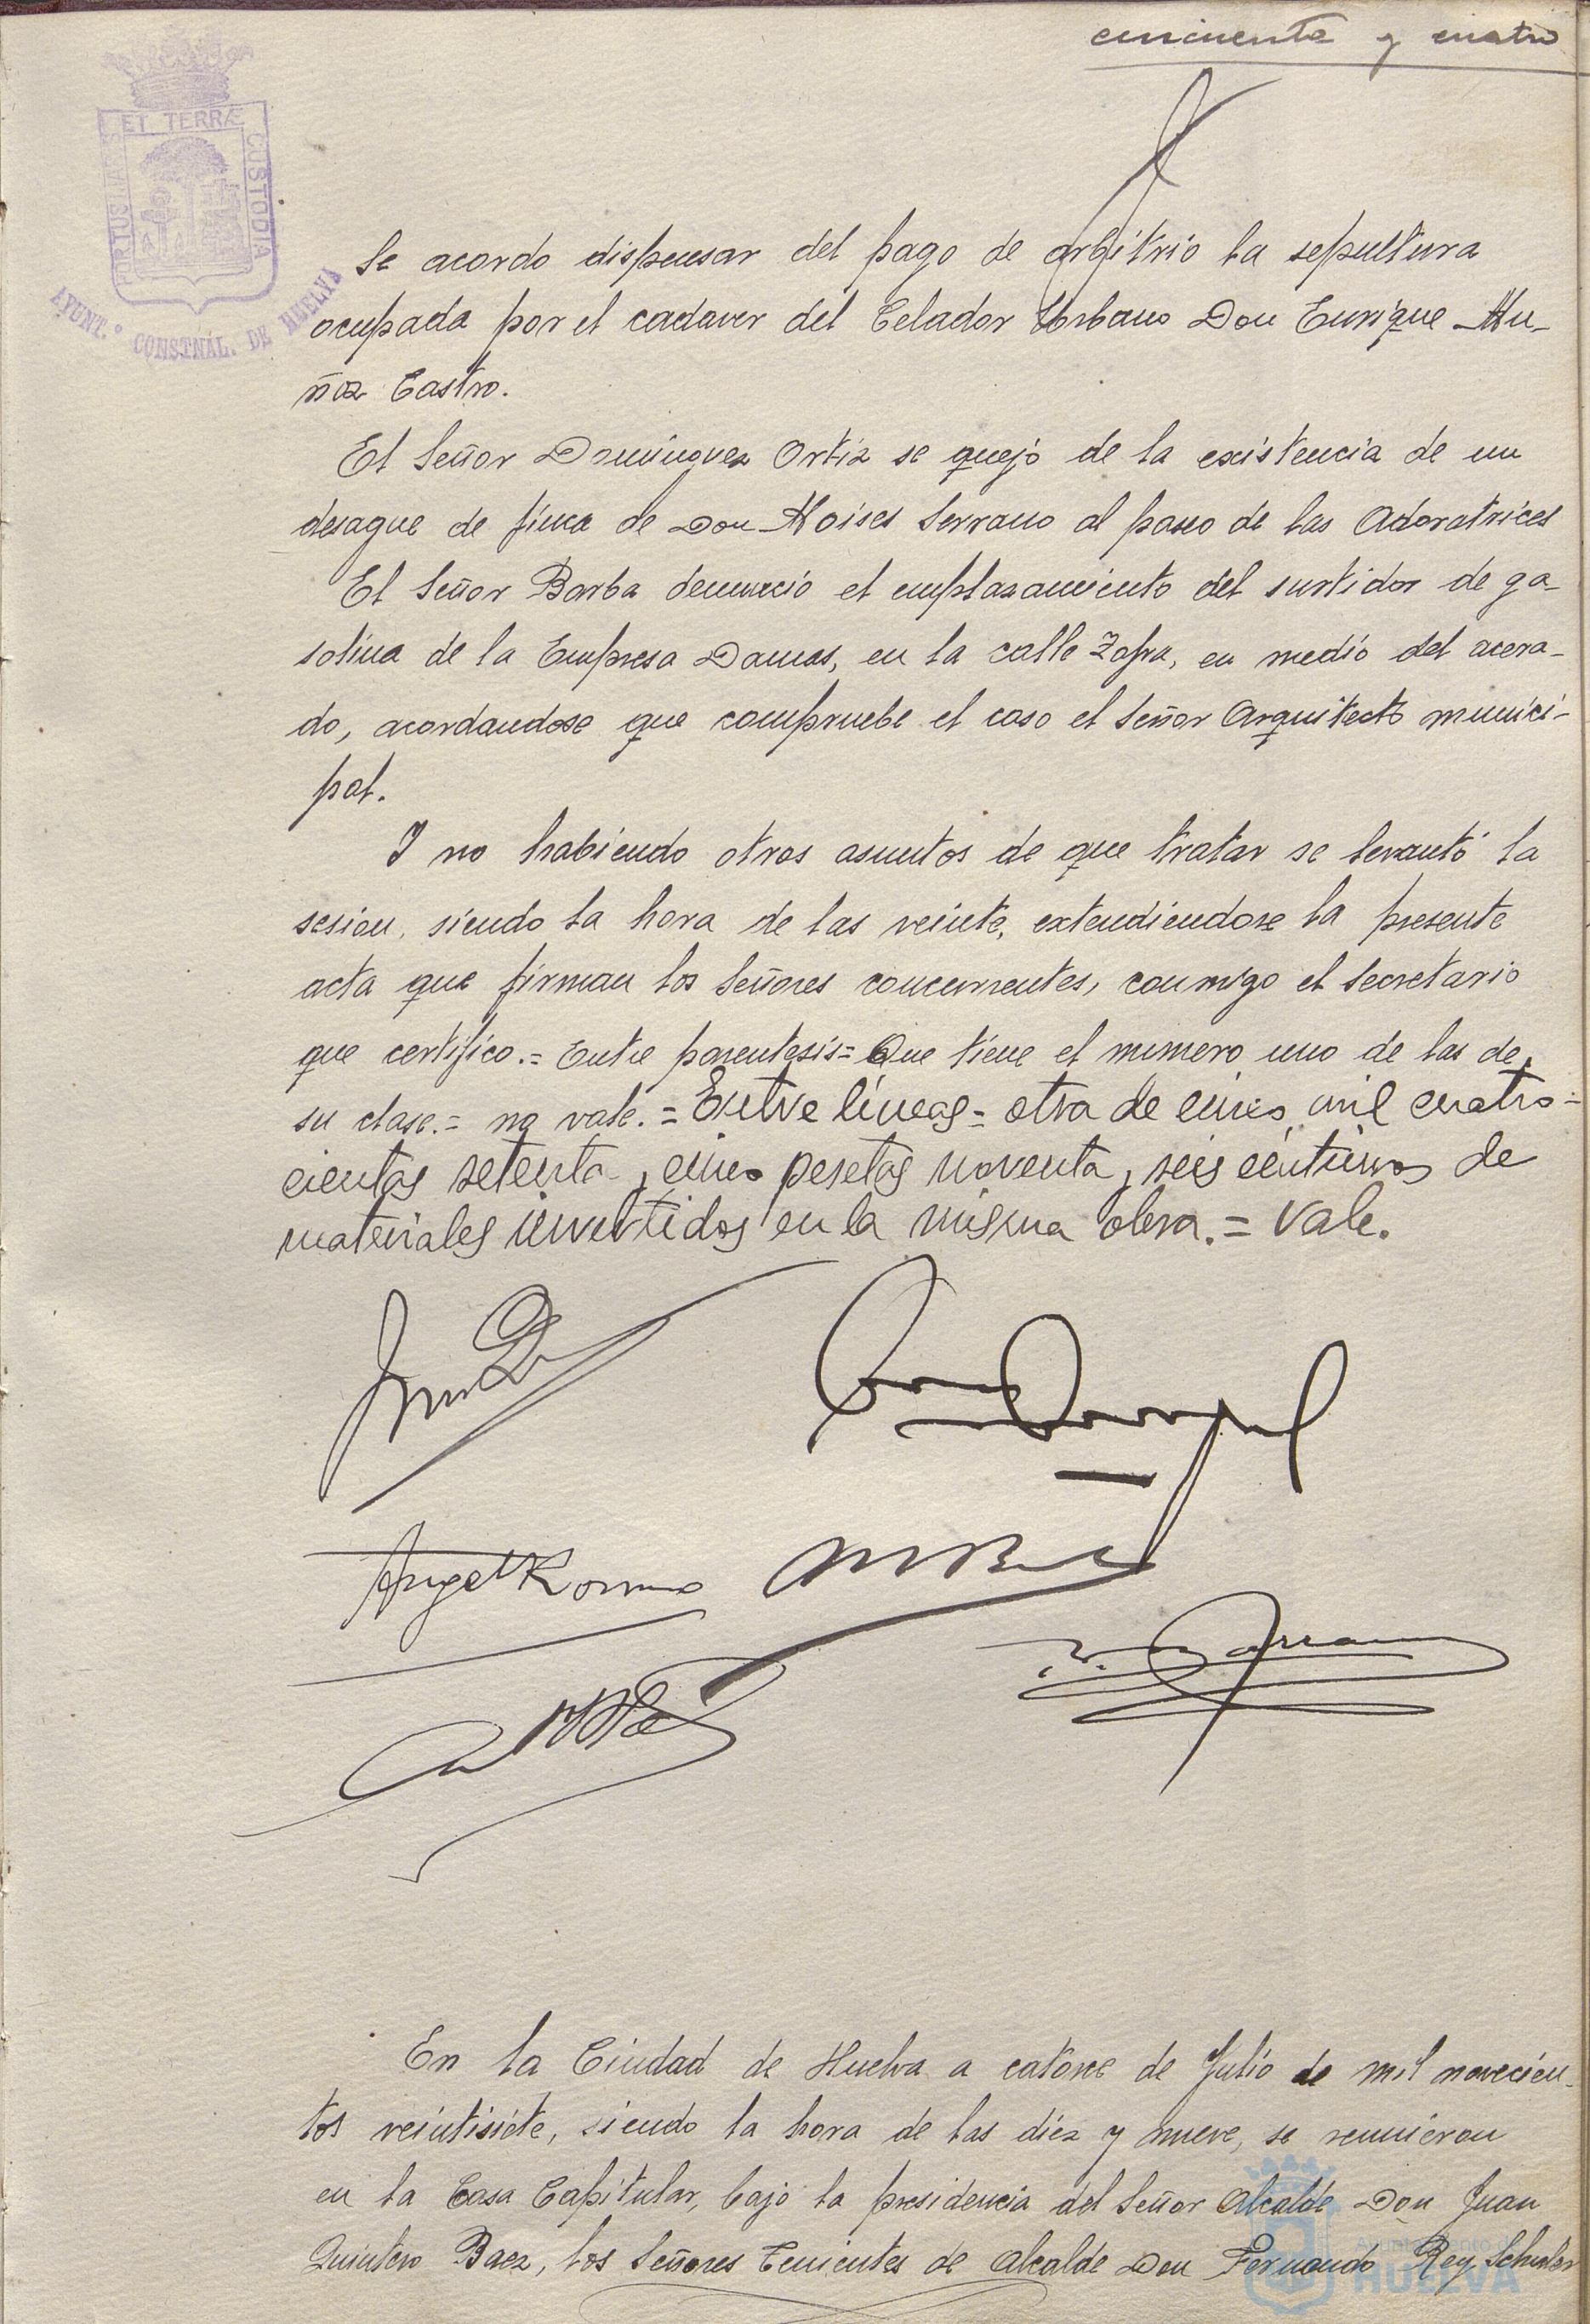 cincuenta y cuatro
PORTUS MARIS ET TERRÆ CUSTODIA
AYUNT.º CONSTNAL. DE HUELVA
Se acordo dispensar del pago de arbitrio la sepultura
ocupada por el cadaver del Celador Urbano Don Enrique Mu-
ñoz Castro.
El Señor Dominguez Ortiz se quejó de la existencia de un
desague de finca de Don Moises Serrano al paseo de las Adoratrices
El Señor Borba denunció el emplazamiento del surtidor de ga-
solina de la Empresa Damas, en la calle Zafra, en medio del acera-
do, acordandose que compruebe el caso el Señor Arquitecto munici-
pal.
Y no habiendo otros asuntos de que tratar se levantó la
sesion, siendo la hora de las veinte, extendiendose la presente
acta que firman los Señores concurrentes, conmigo el Secretario
que certifico.= Entre parentesis= Que tiene el numero uno de las de
su clase.= no vale.= Entre lineas= otra de cinco mil cuatro-
cientas setenta y cinco pesetas noventa y seis céntimos de
materiales invertidos en la misma obra.= Vale.
Angel Romero
En la Ciudad de Huelva a catorce de Julio de mil novecien-
tos veintisiete, siendo la hora de las diez y nueve, se reunieron
en la Casa Capitular, bajo la presidencia del Señor Alcalde Don Juan
Quintero Baez, los Señores Tenientes de Alcalde Don Fernando Rey Schuler
Ayuntamiento
HUELVA